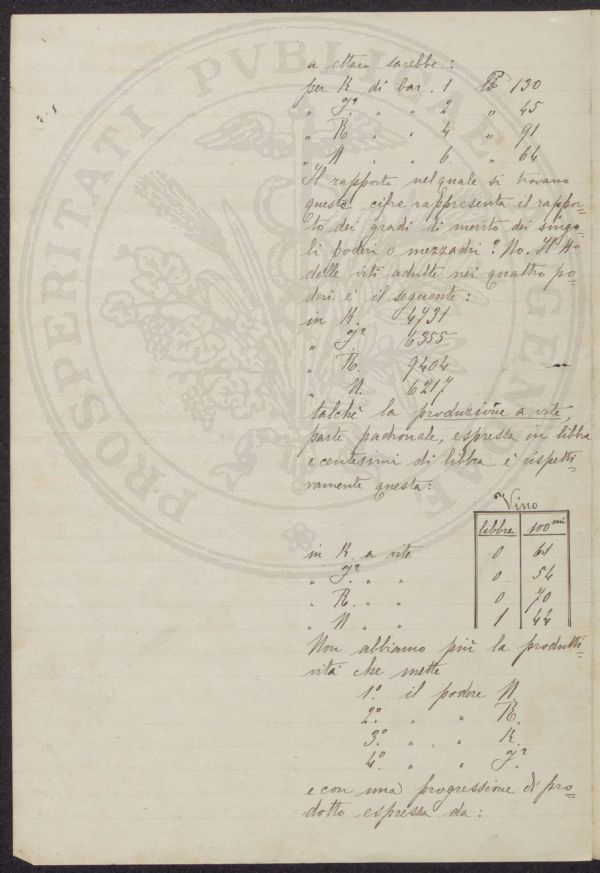 a ettaro sarebbe:
per K di bar. 1 lb 130
" J² " " 2 " 45
" R " " 4 " 91
" N " " 6 " 64
Il rapporto nel quale si trovano
queste cifre rappresenta il rappor=
to dei gradi di merito dei singo=
li poderi o mezzadri? No. Il No
delle viti adulte nei quattro po=
deri è il seguente:
in K. 4731
" J² 6355
" R. 9404
" N. 6217
talchè la produzione a vite,
parte padronale, espressa in libbra
e centesimi di libbra è rispetti=
vamente questa:
Vino
libbra 100mi
in K a vite 0 61
" J² " " 0 54
" R. " " 0 70
" N " " 1 44
Non abbiamo più la produtti=
vità che mette
1º il podere N.
2º " " R.
3º " " K.
4º " " J²
e con una progressione di pro=
dotto espressa da:
PROSPERITATI PUBLICAE AUGENDAE